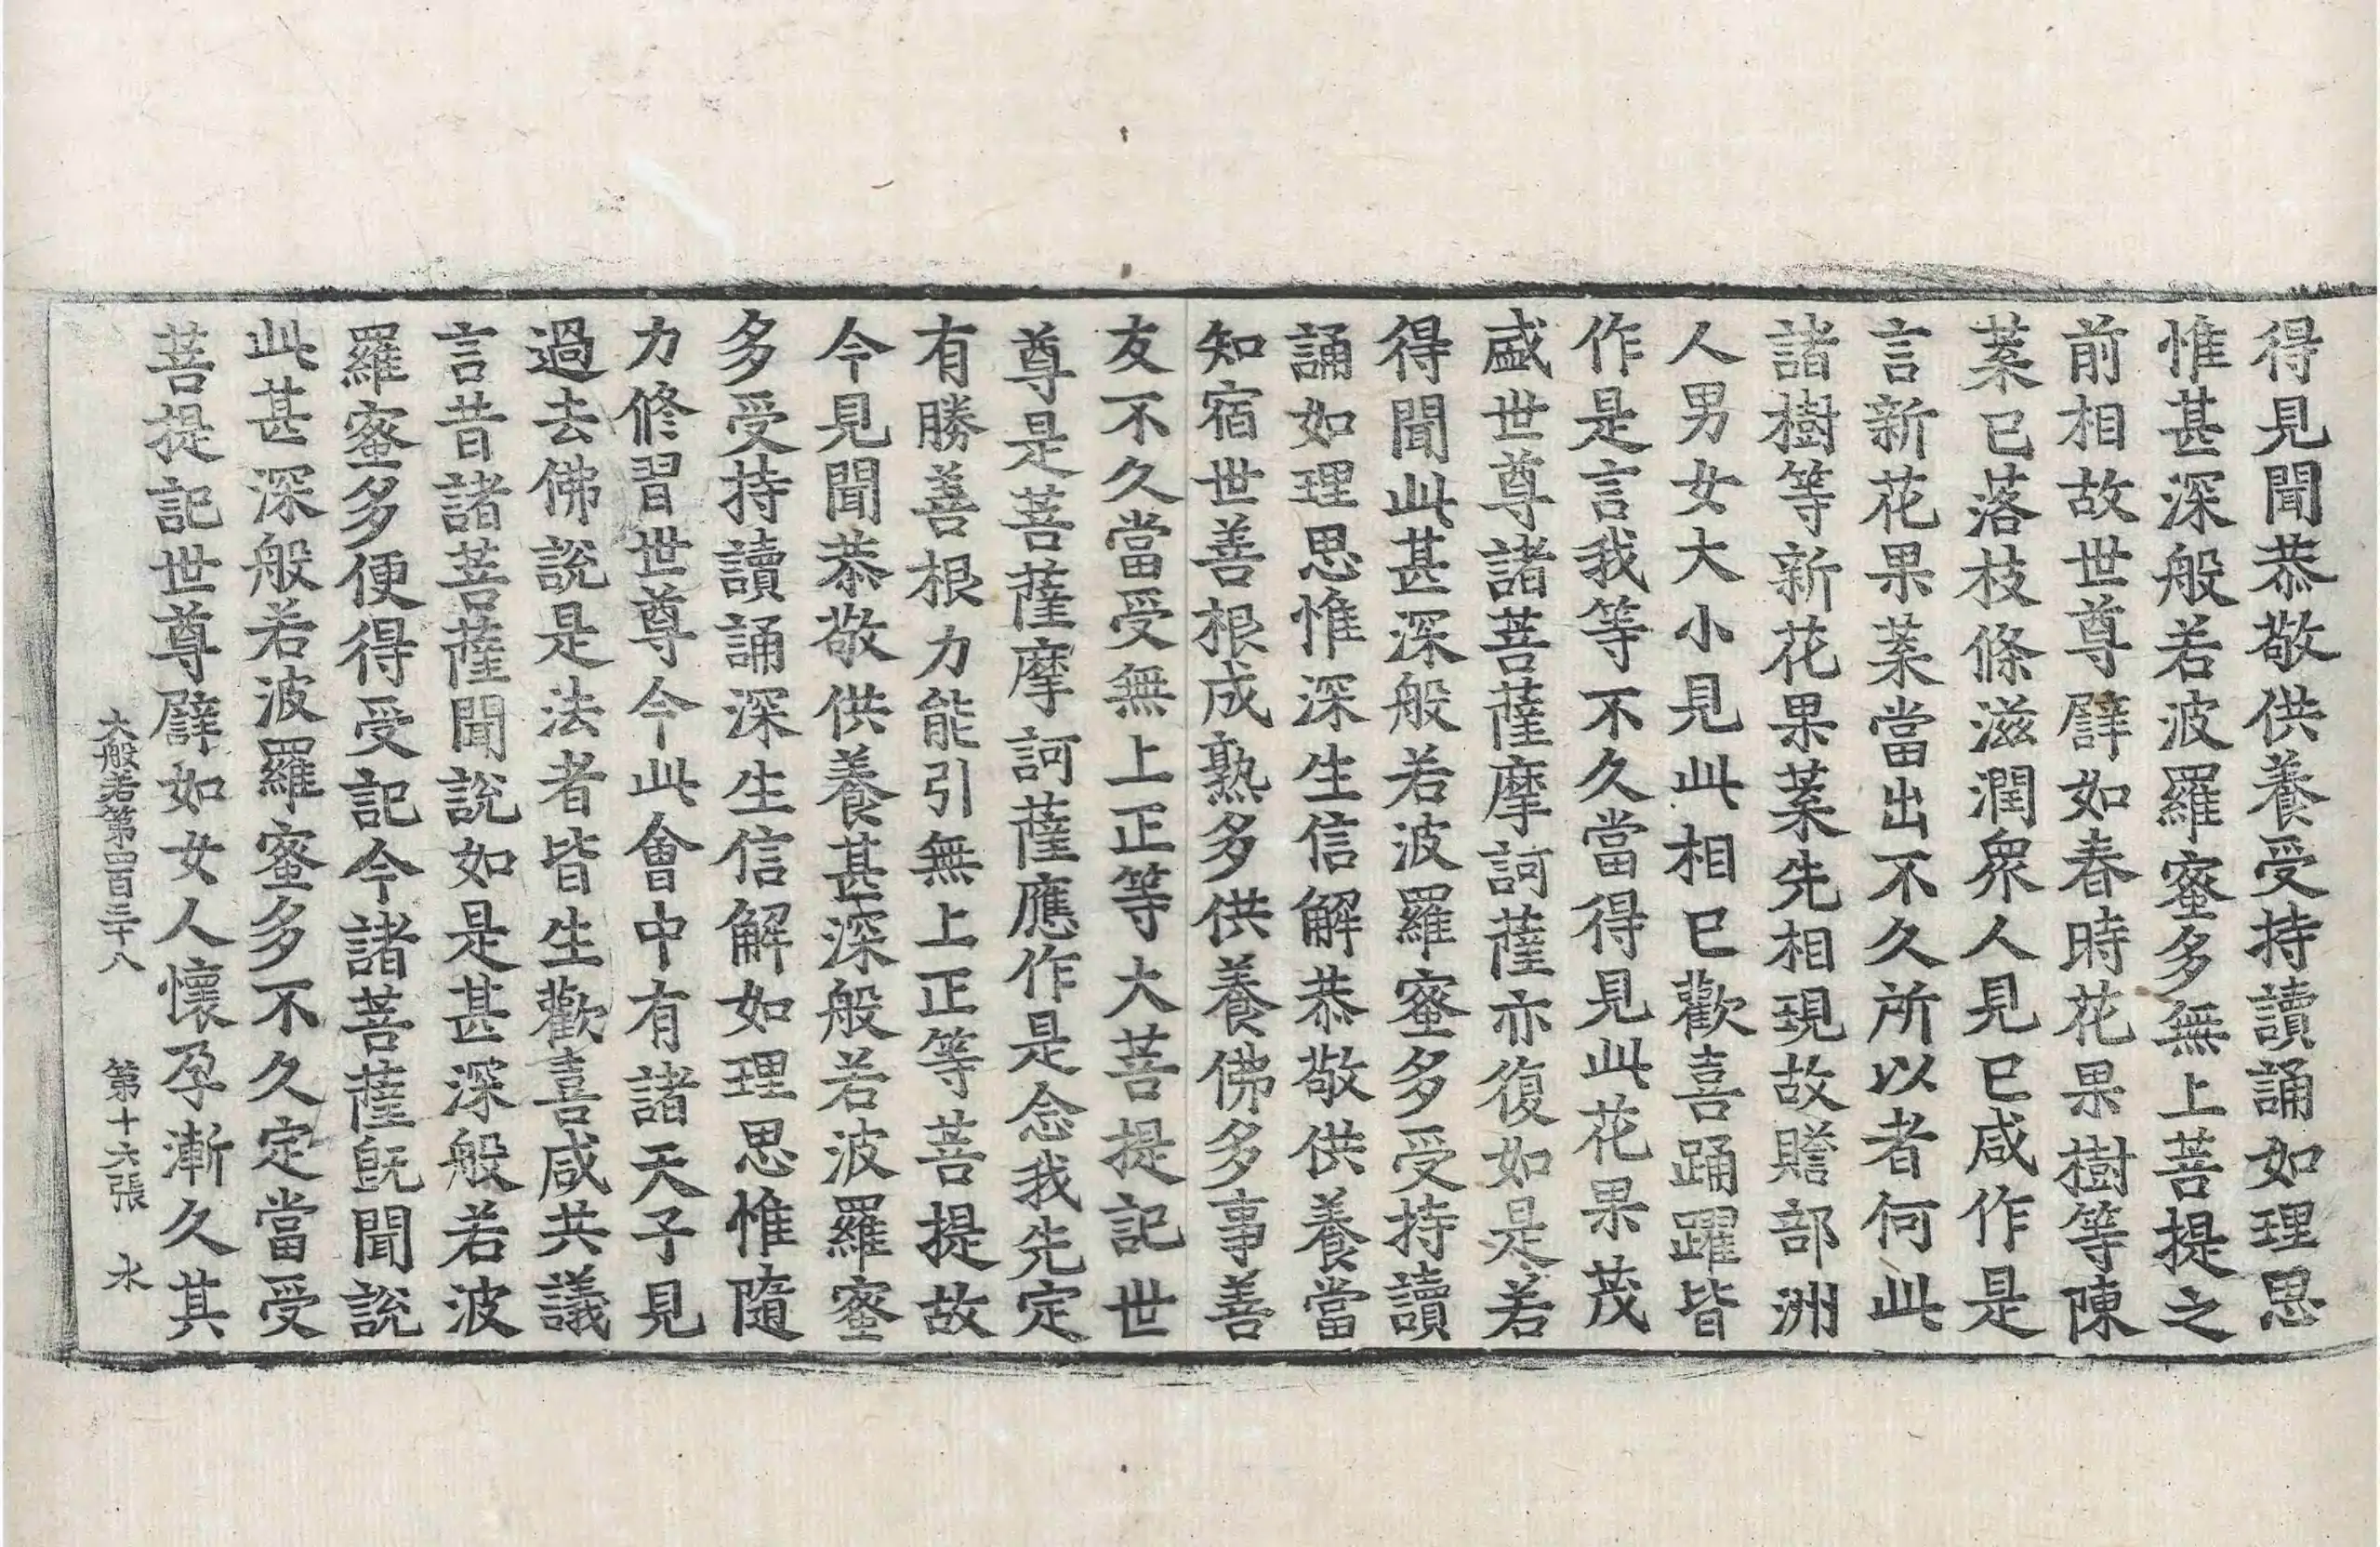 得見聞恭敬供養受持讀誦如理思
惟甚深般若波羅蜜多無上菩提之
前相故世尊譬如春時花果樹等陳
葉已落枝條滋潤衆人見已咸作是
言新花果葉當出不久所以者何此
諸樹等新花果葉先相現故贍部洲
人男女大小見此相已歡喜踊躍皆
作是言我等不久當得見此花果茂
盛世尊諸菩薩摩訶薩亦復如是若
得聞此甚深般若波羅蜜多受持讀
誦如理思惟深生信解恭敬供養當
知宿世善根成熟多供養佛多事善
友不久當受無上正等大菩提記世
尊是菩薩摩訶薩應作是念我先定
有勝善根力能引無上正等菩提故
今見聞恭敬供養甚深般若波羅蜜
多受持讀誦深生信解如理思惟隨
力修習世尊今此會中有諸天子見
過去佛說是法者皆生歡喜咸共議
言昔諸菩薩聞說如是甚深般若波
羅蜜多便得受記今諸菩薩旣聞說
此甚深般若波羅蜜多不久定當受
菩提記世尊譬如女人懷孕漸久其
大般若第四百三十八 第十六張 水